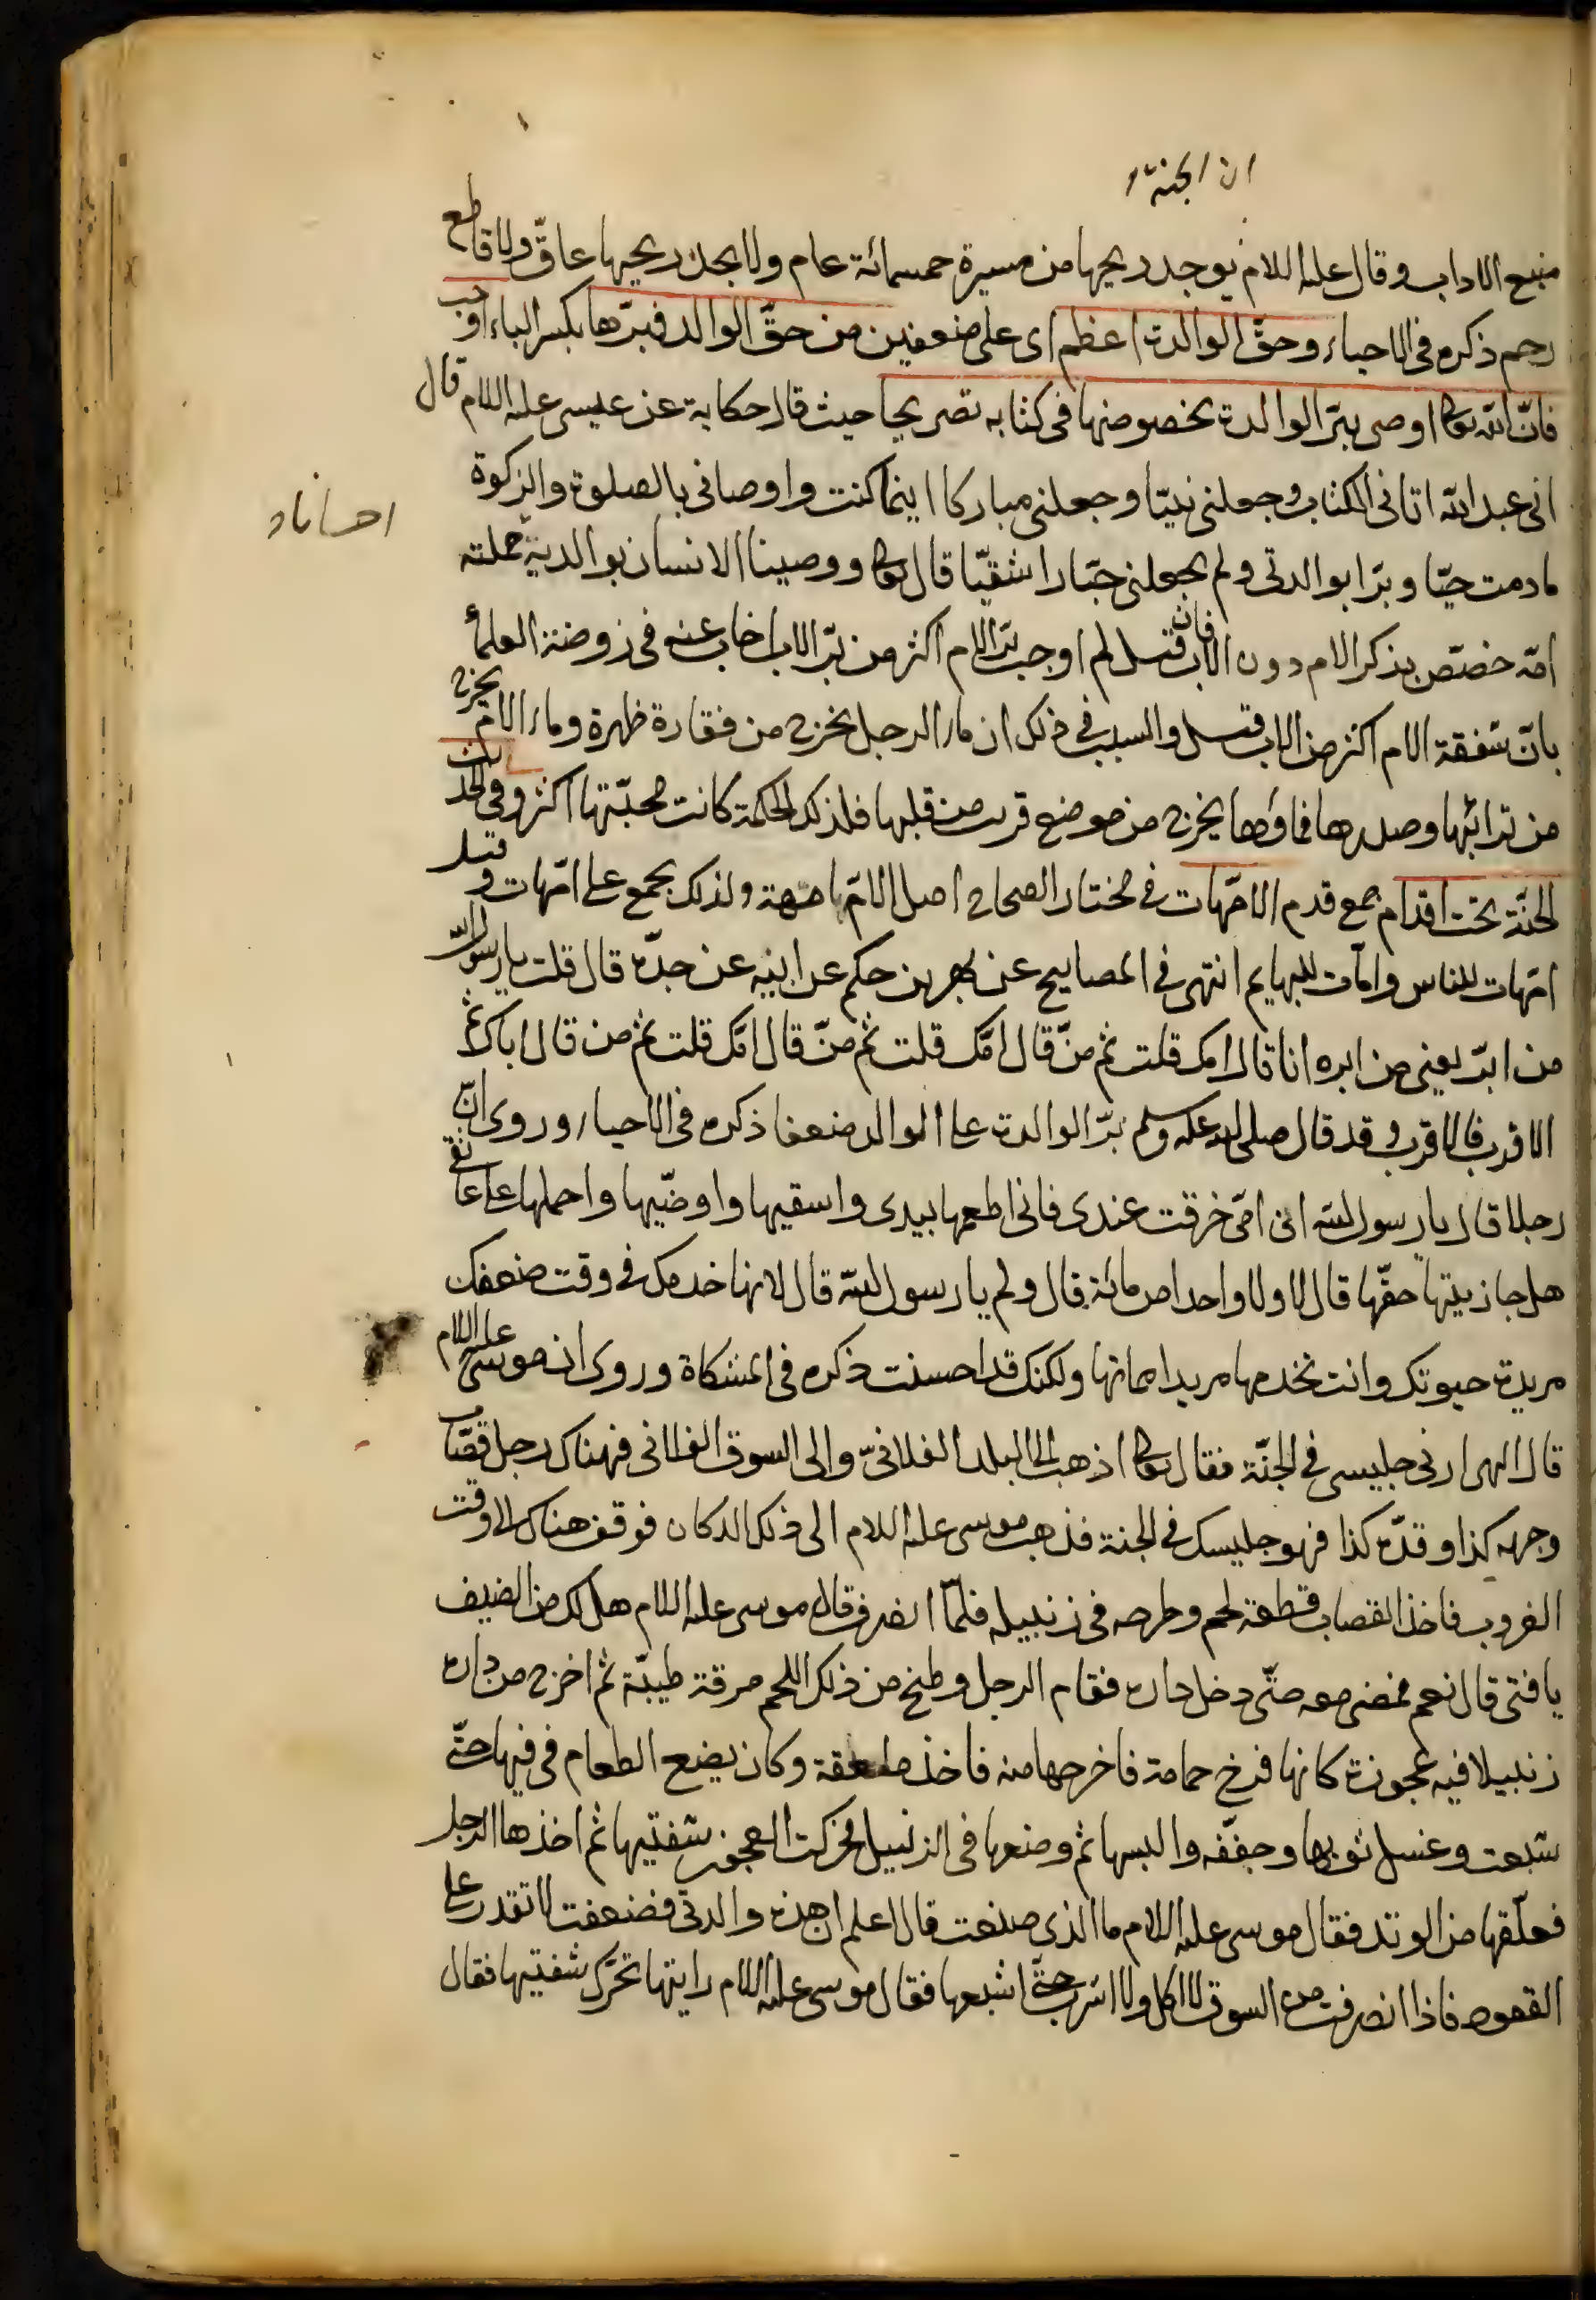 ان الجنة
منبع الاداب وقال عليه السلام يوجد ريحها من مسيرة خمسمائة عام ولا يجد ريحها عاقّ ولا قاطع
رحم ذكره في الاحياء وحقّ الوالدة اعظم اى على ضعفين من حقّ الوالد فبرّها بكسر الباء اوجب
فانّ الله تعالى اوصى ببرّ الوالدة بخصوصها في كتابه تصريحا حيث قال حكاية عن عيسى عليه السلام قال
انى عبد الله اتانى الكتاب وجعلنى نبيّا وجعلنى مباركا اينما كنت واوصانى بالصلوة والزكوة
احسانا
مادمت حيّا وبرّا بوالدتى ولم يجعلنى جبّارا شقيّا قال تعالى ووصينا الانسان بوالديه حملته
امّه خصّص بذكر الام دون الاب فان قيل لم اوجب برّ الام اكثر من برّ الاب اجاب عنه في روضة العلماء
بانّ شفقة الام اكثر من الاب قيل والسبب في ذلك ان ماء الرجل يخرج من فقارة ظهره وماء الام يخرج
من ترائبها وصدرها فماؤها يخرج من موضع قريب من قلبها فلذلك الحكمة كانت محبّتها اكثر وفي الحديث
الجنّة تحت اقدام جمع قدم الامّهات في مختار الصحاح اصل الامّ امهة ولذلك يجمع على امّهات وقيل
امّهات للناس وامّات للبهايم انتهى في المصابيح عن بهز بن حكيم عن ابيه عن جدّه قال قلت يا رسول الله
من ابرّ يعنى من ابره انا قال امك قلت ثم منّ قال امّك قلت ثم منّ قال امّك قلت ثم من قال اباك ثم
الاقرب فالاقرب وقد قال صلى الله عليه وسلم برّ الوالدة على الوالد ضعفا ذكره في الاحياء وروى انّ
رجلا قال يا رسول الله ان امّى خرقت عندى فانى اطعمها بيدى واسقيها واوضّيها واحملها على عاتقى
هل جازيتها حقّها قال لا ولا واحدا من مائة قال ولم يا رسول الله قال لانها خدمتك في وقت ضعفك
مريدة حيوتك وانت تخدمها مريدا مماتها ولكنك قد احسنت ذكره في المشكاة وروى ان موسى عليه السلام
قال الهى ارنى جليسى في الجنّة فقال تعالى اذهب الى البلد الفلانىّ والى السوق الفلانى فهناك رجل قصّاب
وجهه كذا وقدّه كذا فهو جليسك في الجنة فذهب موسى عليه السلام الى ذلك الدكان فوقف هناك الى وقت
الغروب فاخذ القصاب قطعة لحم وطرحه في زنبيله فلمّا انصرف قال موسى عليه السلام هل لك من الضيف
يا فتى قال نعم فمضى معه حتّى دخل داره فقام الرجل وطبخ من ذلك اللحم مرقة طيبّة ثم اخرج من داره
زنبيلا فيه عجوزة كانها فرخ حمامة فاخرجها منه فاخذ ملعقة وكان يضع الطعام في فيها حتّى
شبعت وغسل ثوبها وجفّفه والبسها ثم وضعها في الزنبيل فحركت العجوز شفتيها ثم اخذها الرجل
فعلّقها من الوتد فقال موسى عليه السلام ما الذى صنعت قال اعلم ان هذه والدتى فضعفت لا تقدر على
القعود فاذا انصرفت من السوق لا اكل ولا اشرب حتّى اشبعها فقال موسى عليه السلام رايتها تحرّك شفتيها فقال